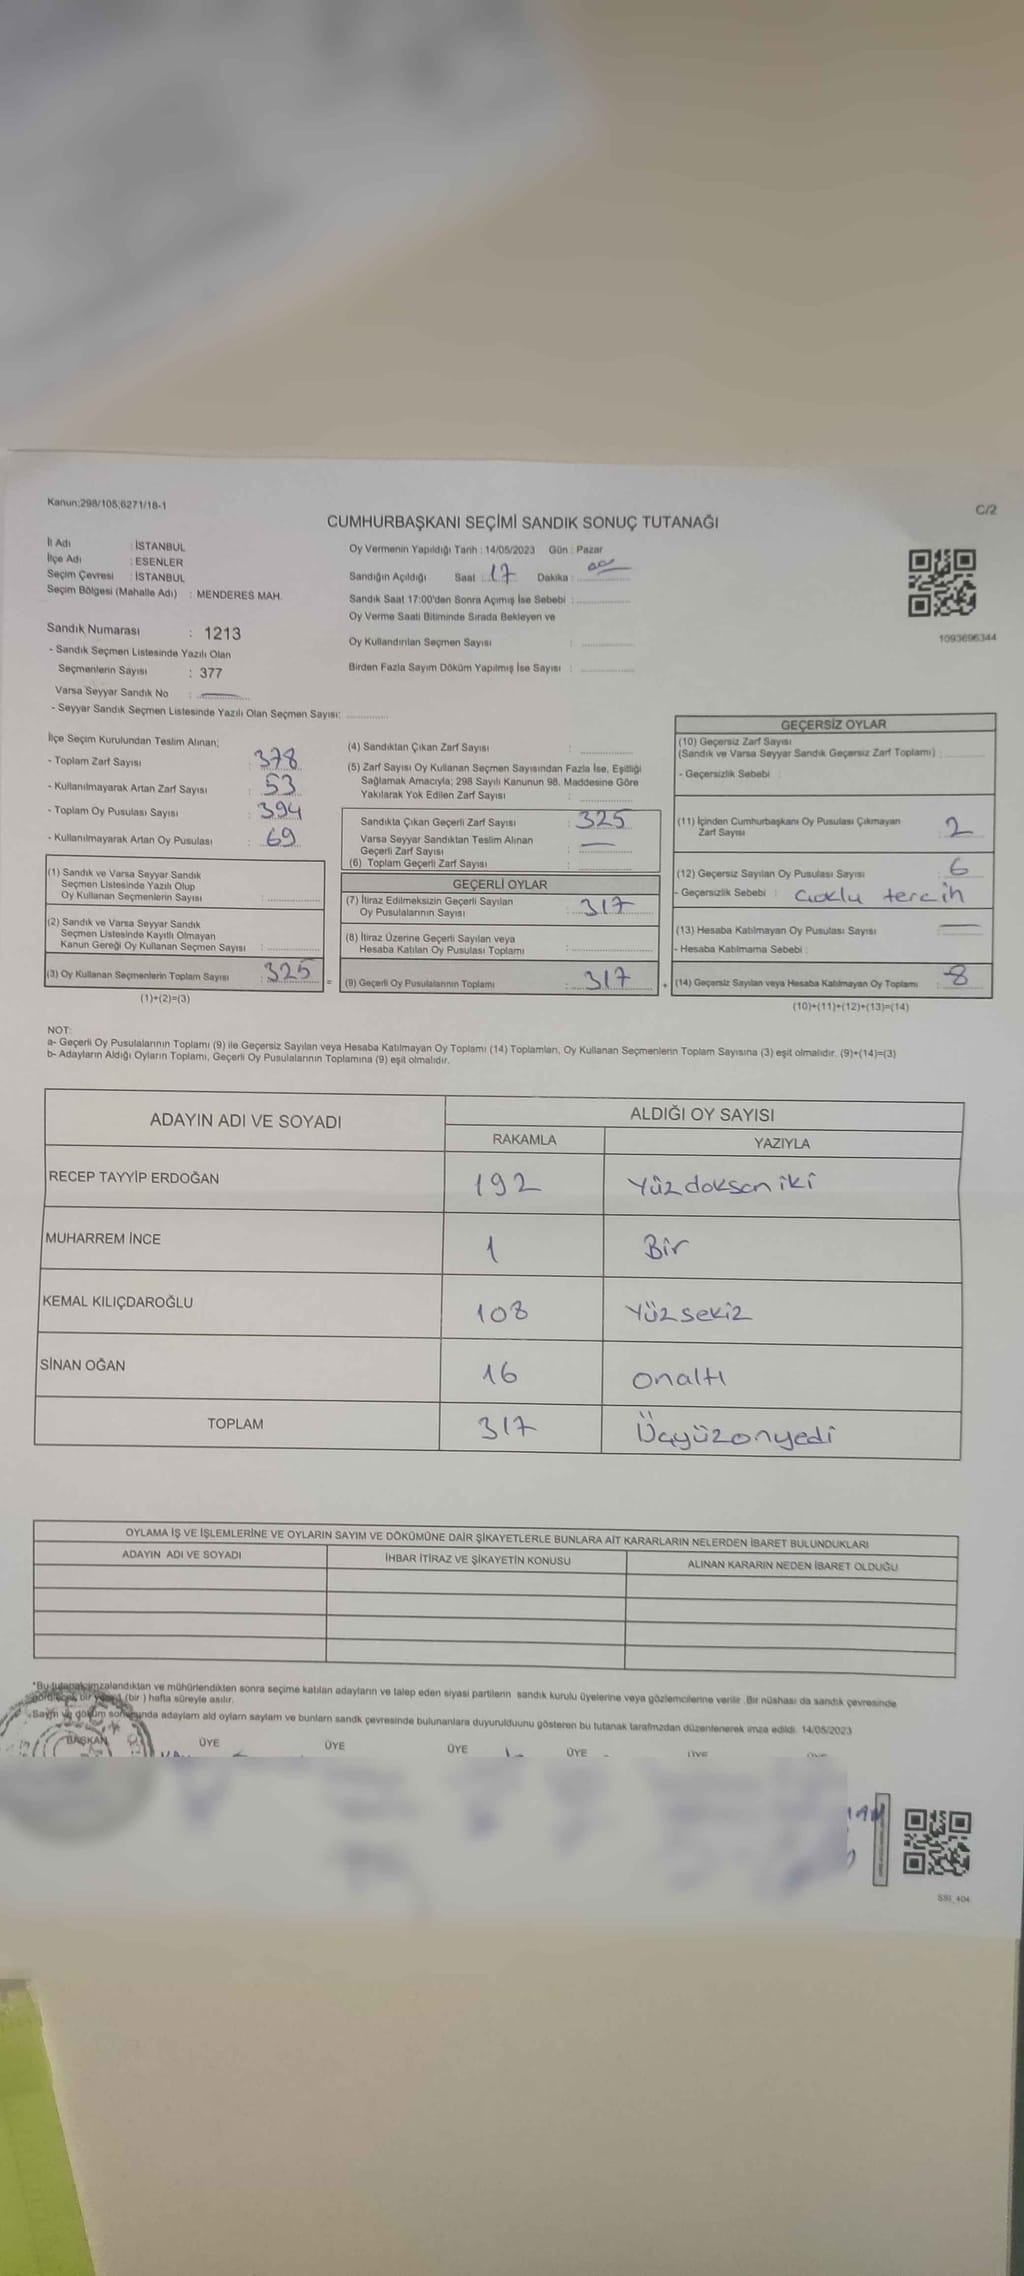 Kanun:298/105;6271/18-1
C/2
CUMHURBAŞKANI SEÇİMİ SANDIK SONUÇ TUTANAĞI
İl Adı : İSTANBUL
İlçe Adı : ESENLER
Seçim Çevresi : İSTANBUL
Seçim Bölgesi (Mahalle Adı) : MENDERES MAH.
Sandık Numarası : 1213
- Sandık Seçmen Listesinde Yazılı Olan
Seçmenlerin Sayısı : 377
Varsa Seyyar Sandık No :
- Seyyar Sandık Seçmen Listesinde Yazılı Olan Seçmen Sayısı:
Oy Vermenin Yapıldığı Tarih : 14/05/2023 Gün : Pazar
Sandığın Açıldığı Saat : 17 Dakika : 00
Sandık Saat 17:00'den Sonra Açımış İse Sebebi :
Oy Verme Saati Bitiminde Sırada Bekleyen ve
Oy Kullandırılan Seçmen Sayısı :
Birden Fazla Sayım Döküm Yapılmış İse Sayısı :
1093696344
İlçe Seçim Kurulundan Teslim Alınan;
- Toplam Zarf Sayısı : 378
- Kullanılmayarak Artan Zarf Sayısı : 53
- Toplam Oy Pusulası Sayısı : 394
- Kullanılmayarak Artan Oy Pusulası : 69
(1) Sandık ve Varsa Seyyar Sandık
Seçmen Listesinde Yazılı Olup
Oy Kullanan Seçmenlerin Sayısı :
(2) Sandık ve Varsa Seyyar Sandık
Seçmen Listesinde Kayıtlı Olmayan
Kanun Gereği Oy Kullanan Seçmen Sayısı :
(3) Oy Kullanan Seçmenlerin Toplam Sayısı : 325
(1)+(2)=(3)
(4) Sandıktan Çıkan Zarf Sayısı :
(5) Zarf Sayısı Oy Kullanan Seçmen Sayısından Fazla İse, Eşitliği
Sağlamak Amacıyla; 298 Sayılı Kanunun 98. Maddesine Göre
Yakılarak Yok Edilen Zarf Sayısı :
Sandıkta Çıkan Geçerli Zarf Sayısı : 325
Varsa Seyyar Sandıktan Teslim Alınan
Geçerli Zarf Sayısı : —
(6) Toplam Geçerli Zarf Sayısı :
GEÇERLİ OYLAR
(7) İtiraz Edilmeksizin Geçerli Sayılan
Oy Pusulalarının Sayısı : 317
(8) İtiraz Üzerine Geçerli Sayılan veya
Hesaba Katılan Oy Pusulası Toplamı :
= (9) Geçerli Oy Pusulalarının Toplamı : 317 +
GEÇERSİZ OYLAR
(10) Geçersiz Zarf Sayısı
(Sandık ve Varsa Seyyar Sandık Geçersiz Zarf Toplamı) :
- Geçersizlik Sebebi :
(11) İçinden Cumhurbaşkanı Oy Pusulası Çıkmayan
Zarf Sayısı : 2
(12) Geçersiz Sayılan Oy Pusulası Sayısı : 6
- Geçersizlik Sebebi : Çoklu tercih
(13) Hesaba Katılmayan Oy Pusulası Sayısı : —
- Hesaba Katılmama Sebebi :
(14) Geçersiz Sayılan veya Hesaba Katılmayan Oy Toplamı : 8
(10)+(11)+(12)+(13)=(14)
NOT:
a- Geçerli Oy Pusulalarının Toplamı (9) ile Geçersiz Sayılan veya Hesaba Katılmayan Oy Toplamı (14) Toplamları, Oy Kullanan Seçmenlerin Toplam Sayısına (3) eşit olmalıdır. (9)+(14)=(3)
b- Adayların Aldığı Oyların Toplamı, Geçerli Oy Pusulalarının Toplamına (9) eşit olmalıdır.
ADAYIN ADI VE SOYADI
ALDIĞI OY SAYISI
RAKAMLA YAZIYLA
RECEP TAYYİP ERDOĞAN 192 Yüzdoksaniki
MUHARREM İNCE 1 Bir
KEMAL KILIÇDAROĞLU 108 Yüzsekiz
SİNAN OĞAN 16 Onaltı
TOPLAM 317 Üçyüzonyedi
OYLAMA İŞ VE İŞLEMLERİNE VE OYLARIN SAYIM VE DÖKÜMÜNE DAİR ŞİKAYETLERLE BUNLARA AİT KARARLARIN NELERDEN İBARET BULUNDUKLARI
ADAYIN ADI VE SOYADI İHBAR İTİRAZ VE ŞİKAYETİN KONUSU ALINAN KARARIN NEDEN İBARET OLDUĞU
*Bu tutanak imzalandıktan ve mühürlendikten sonra seçime katılan adayların ve talep eden siyasi partilerin sandık kurulu üyelerine veya gözlemcilerine verilir. Bir nüshası da sandık çevresinde
bir (bir ) hafta süreyle asılır.
Sayım ve döküm sonunda adaylarn ald oylarn saylarn ve bunlarn sandk çevresinde bulunanlara duyurulduunu gösteren bu tutanak tarafmzdan düzenlenerek imza edildi. 14/05/2023
BAŞKAN ÜYE ÜYE ÜYE ÜYE ÜYE ÜYE
SSI_404